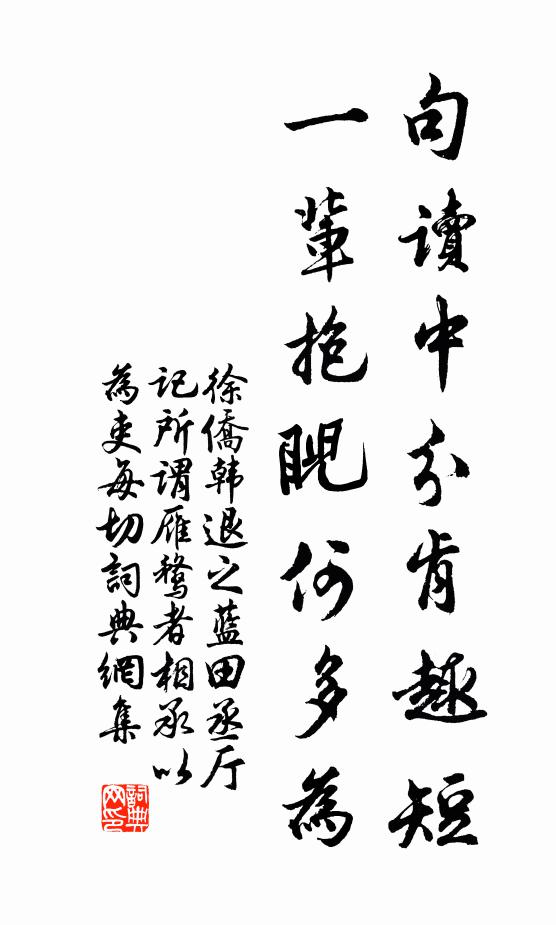 句讀中分肯趣短
一輩抱睨何多為
徐僑韩退之蓝田丞厅
记所谓雁鹜者相承以
為吏每切詞典網集
詞典
网印